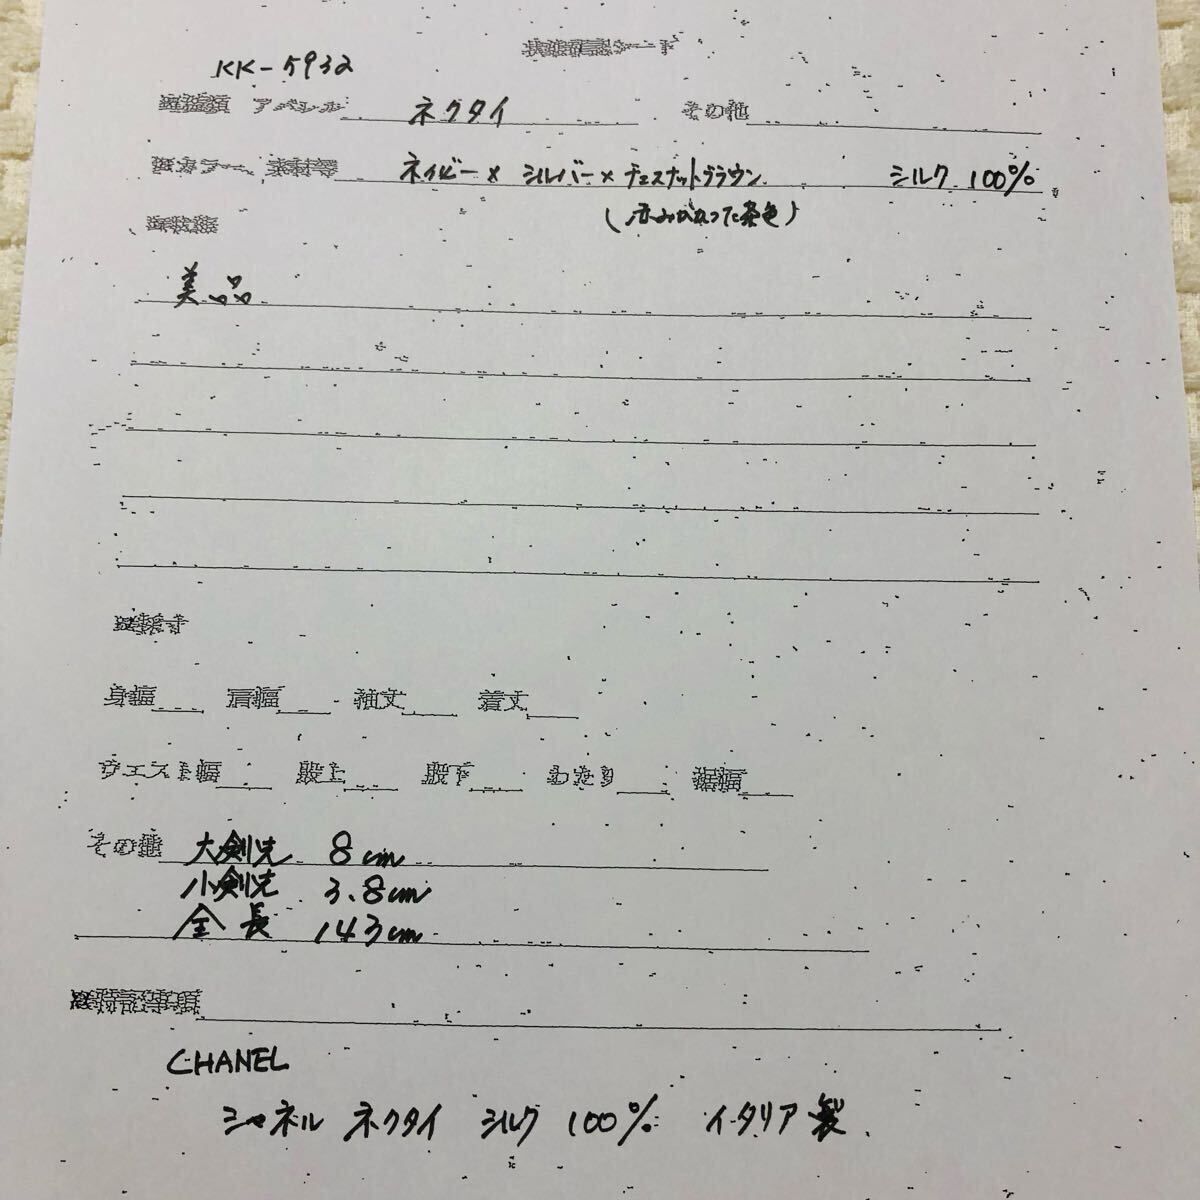 KK-5932
アパレル ネクタイ その他
カラー、素材等 ネイビー × シルバー × チェスナットブラウン シルク 100%
(赤みがかった茶色)
美品
身幅 肩幅 袖丈 着丈
ウエスト幅 股上 股下 わたり 裾幅
その他 大剣先 8cm
小剣先 3.8cm
全長 143cm
特記事項
CHANEL
シャネル ネクタイ シルク 100% イタリア製